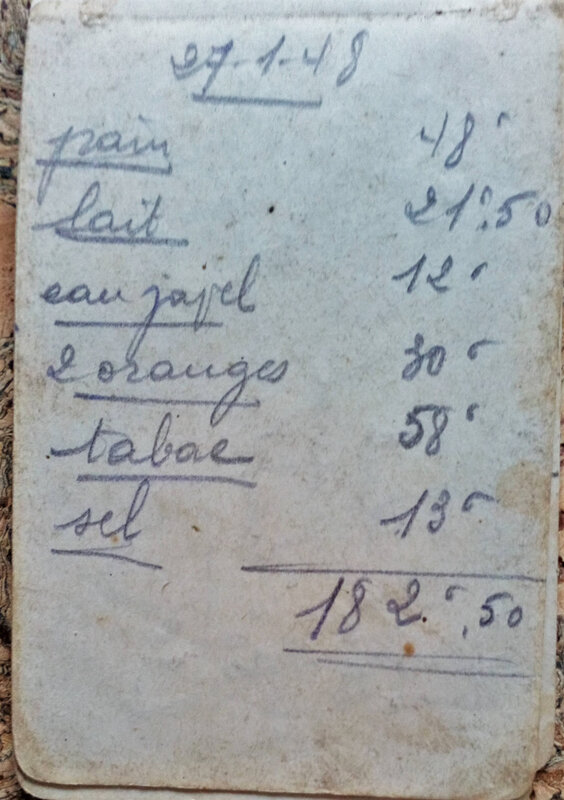 27-1-48
pain 48f
lait 21f.50
eau javel 12f
2 oranges 30f
tabac 58f
sel 13f
182f.50